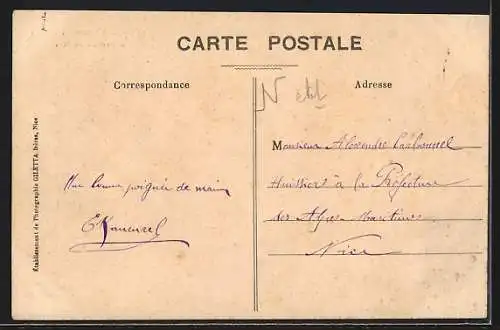 CARTE POSTALE
Correspondance
Adresse
Une bonne poignée de main
Monsieur Alexandre
Huissier à la Préfecture
des Alpes-Maritimes
Nice
Établissement de Photographie GILETTA, frères, Nice